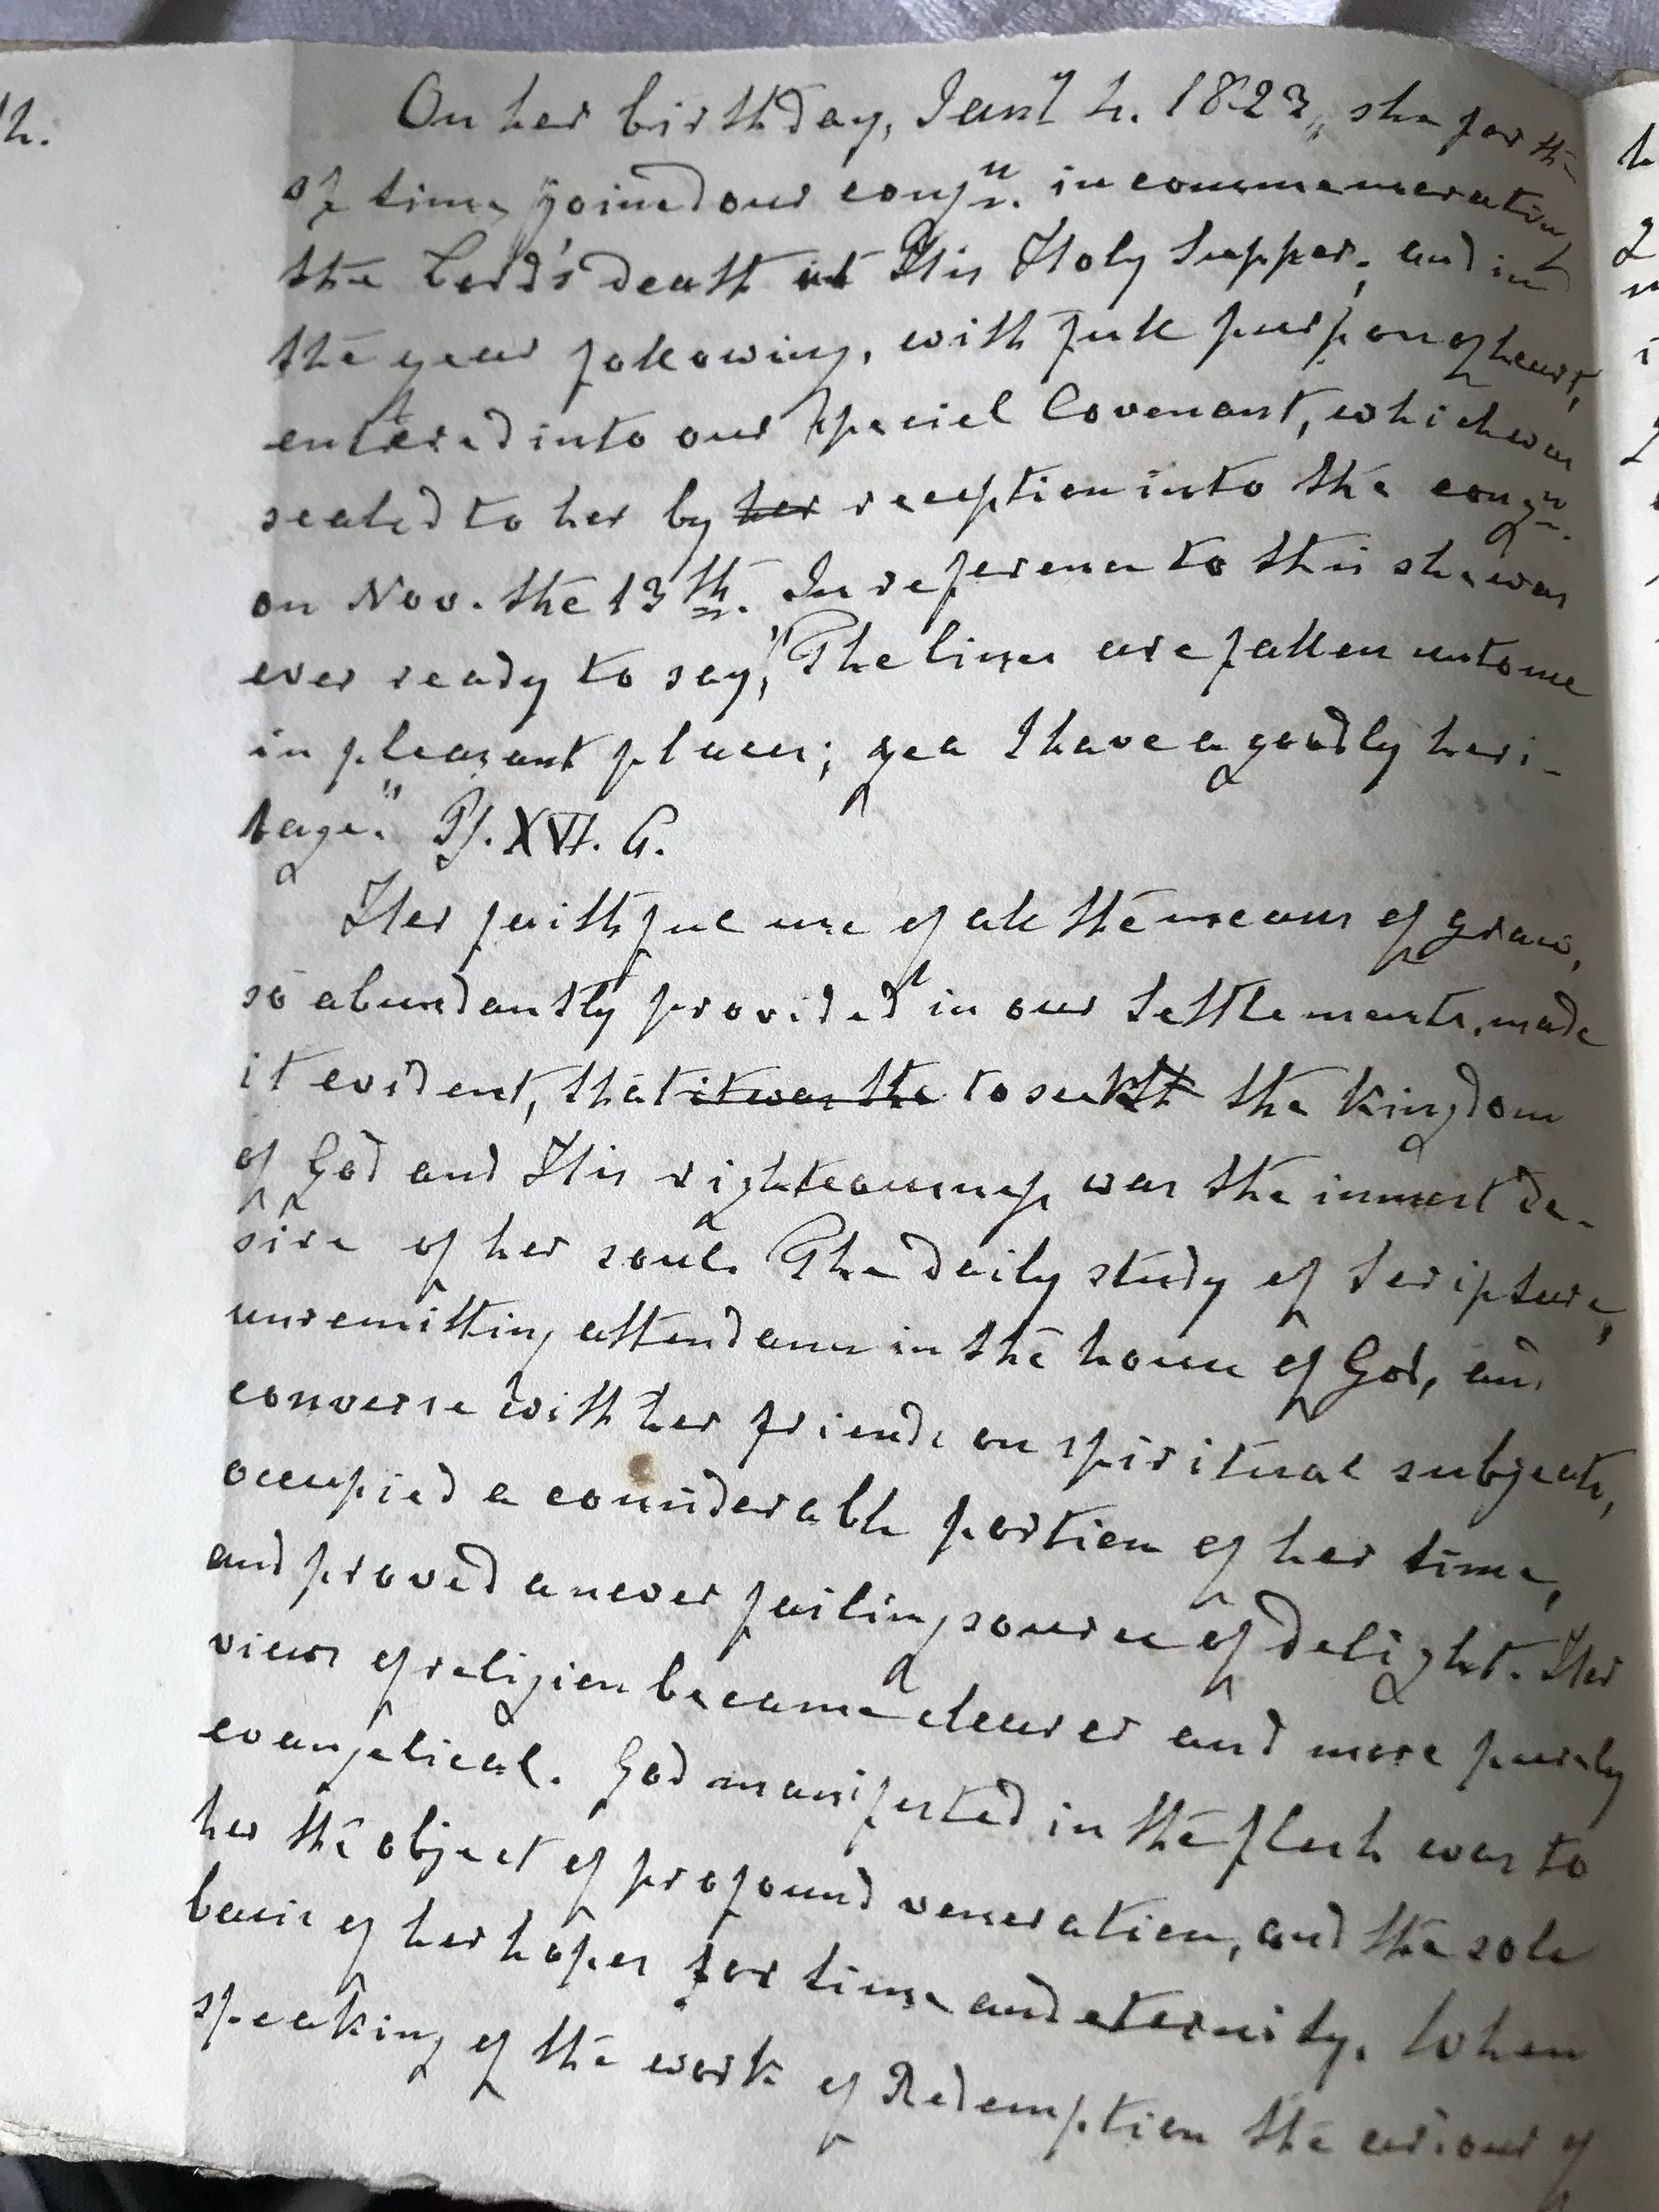 On her birthday, Jan.y 4. 1823, she for the
st time, joined our congn. in commemeration
the Lord's death at His Holy Supper, and in
the year following, with full purpose of heart,
entered into our special Covenant, which was
sealed to her by her reception into the congn.
on Nov. the 13th. In reference to this she was
ever ready to say, "The lines are fallen unto me
in pleasant places; yea I have a goodly heri-
tage." Ps. XVI. 6.
Her faithful use of all the means of grace,
so abundantly provided in our Settlements, made
it evident, that it was the to seek the kingdom
of God and His righteousness was the inmost de-
sire of her soul. The daily study of Scripture,
unremitting attendance in the house of God, and
converse with her friends on spiritual subjects,
occupied a considerable portion of her time,
and proved a never failing source of delight. Her
views of religion became clearer and more purely
evangelical. God manifested in the flesh was to
her the object of profound veneration, and the sole
basis of her hopes for time and eternity. When
speaking of the work of Redemption the of
h.